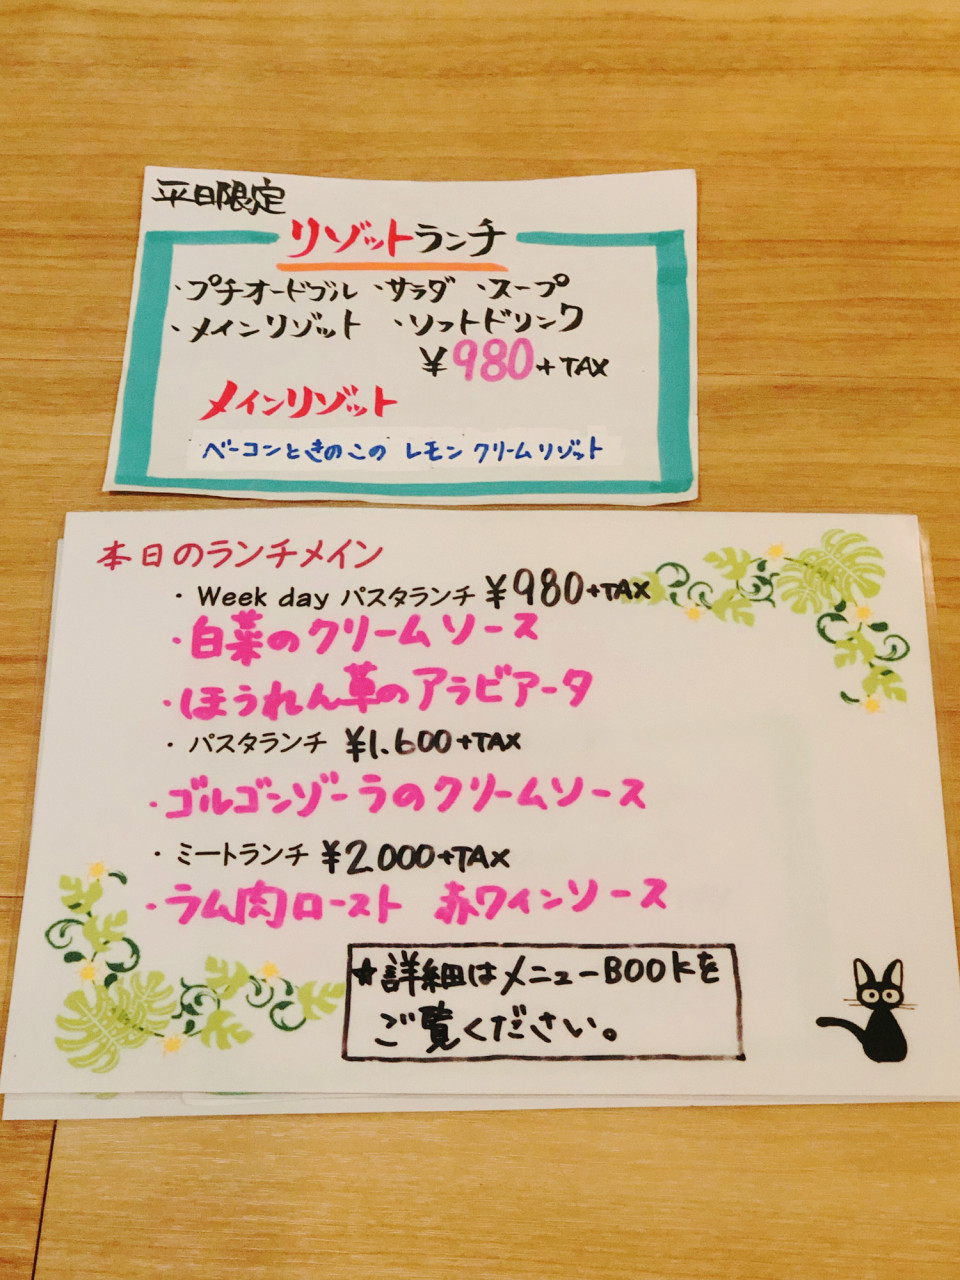 平日限定
リゾットランチ
・プチオードブル ・サラダ ・スープ
・メインリゾット ・ソフトドリンク
¥980+TAX
メインリゾット
ベーコンときのこの レモンクリームリゾット
本日のランチメイン
・Week day パスタランチ ¥980+TAX
・白菜のクリームソース
・ほうれん草のアラビアータ
・パスタランチ ¥1.600+TAX
・ゴルゴンゾーラのクリームソース
・ミートランチ ¥2.000+TAX
・ラム肉ロースト 赤ワインソース
★詳細はメニューBOOKを
ご覧ください。